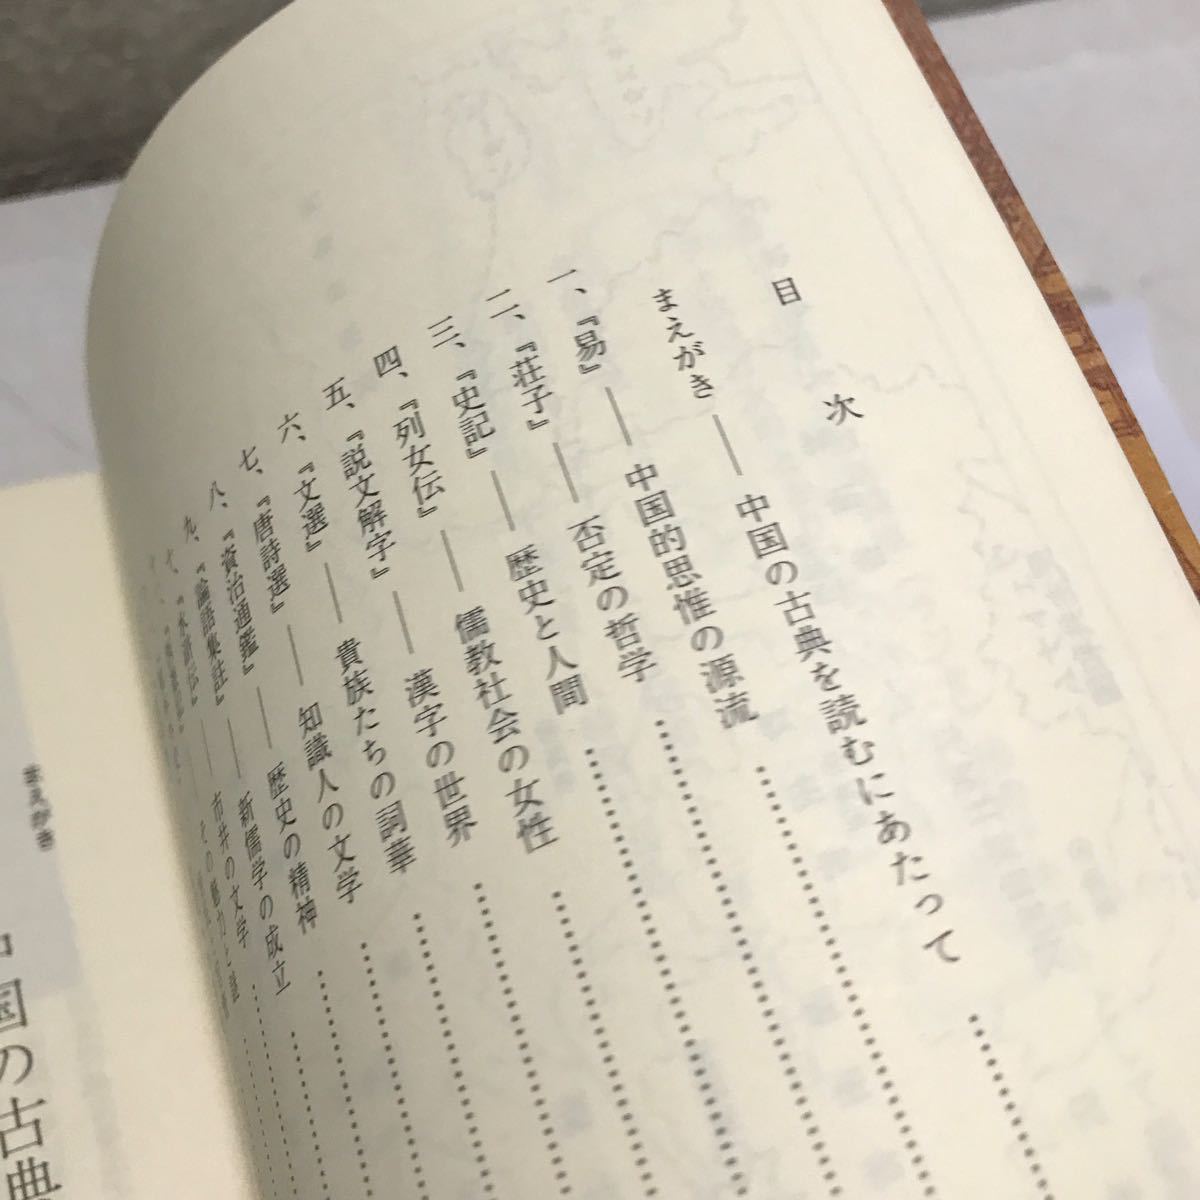 目次
まえがき――中国の古典を読むにあたって
一、『易』――中国的思惟の源流
二、『荘子』――否定の哲学
三、『史記』――歴史と人間
四、『列女伝』――儒教社会の女性
五、『説文解字』――漢字の世界
六、『文選』――貴族たちの詞華
七、『唐詩選』――知識人の文学
八、『資治通鑑』――歴史の精神
九、『論語集註』――新儒学の成立
十、『水滸伝』――市井の文学
まえがき
国の古典